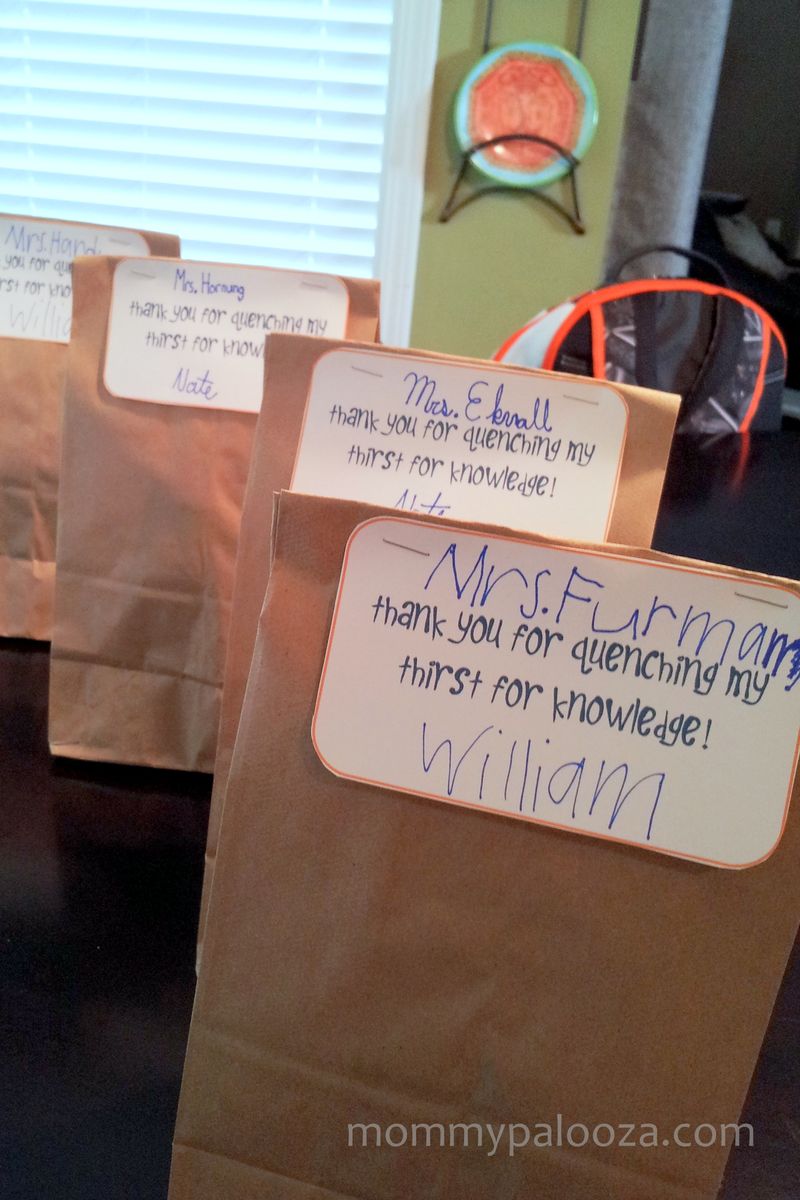 Mrs. Hand
you for
rst for kno
Willia
Mrs. Hornung
thank you for quenching my
thirst for know
Nate
Mrs. Ekvall
thank you for quenching my
thirst for knowledge!
Nate
Mrs. Furman
thank you for quenching my
thirst for knowledge!
William
mommypalooza.com